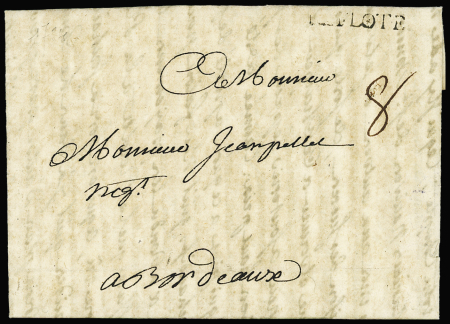 FLOTE
A Monsieur
8
Monsieur Jeanpelle
negt.
a Bordeaux